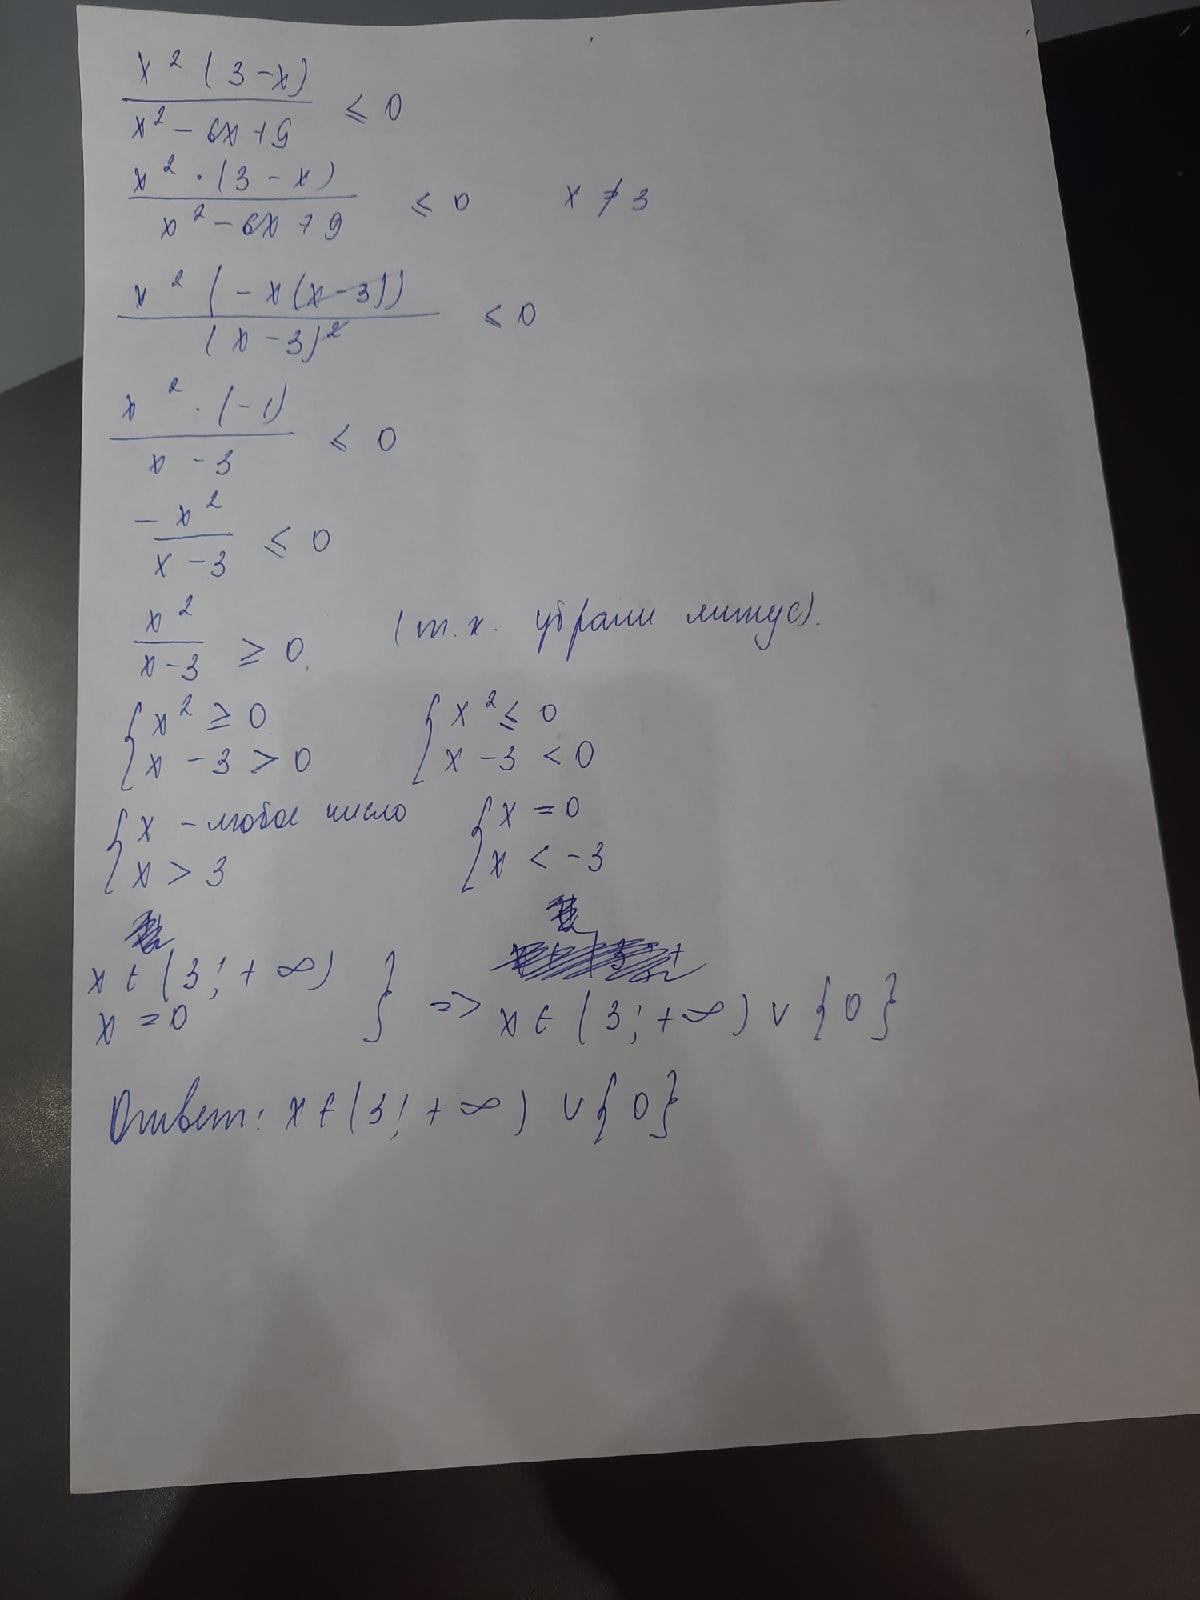 x² (3-x)
/
x² - 6x + 9 ≤ 0
x² · (3 - x)
/
x² - 6x + 9 ≤ 0 x ≠ 3
x² (-x(x-3))
/
(x-3)² ≤ 0
x² · (-1)
/
x - 3 ≤ 0
- x²
/
x - 3 ≤ 0
x²
/
x-3 ≥ 0. (т.к. убрали минус).
{ x² ≥ 0 { x² ≤ 0
{ x - 3 > 0 { x - 3 < 0
{ x - любое число { x = 0
{ x > 3 { x < -3
x ∈ (3; + ∞) }
x = 0 } => x ∈ (3; + ∞) ∨ {0}
Ответ: x ∈ (3; + ∞) ∨ {0}